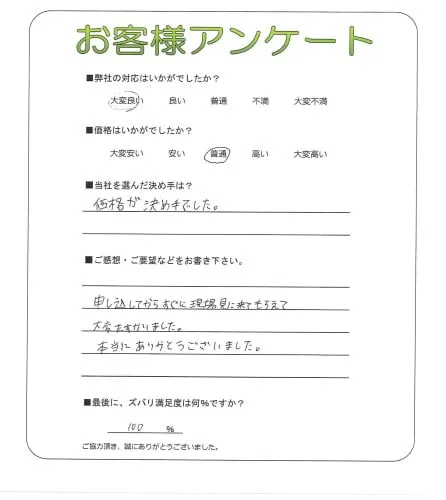 お客様アンケート
■弊社の対応はいかがでしたか?
大変良い 良い 普通 不満 大変不満
■価格はいかがでしたか?
大変安い 安い 普通 高い 大変高い
■当社を選んだ決め手は?
価格が決め手でした。
■ご感想・ご要望などをお書き下さい。
申し込してからすぐに現場見に来てもらえて
大変たすかりました。
本当にありがとうございました。
■最後に、ズバリ満足度は何%ですか?
100 %
ご協力頂き、誠にありがとうございました。